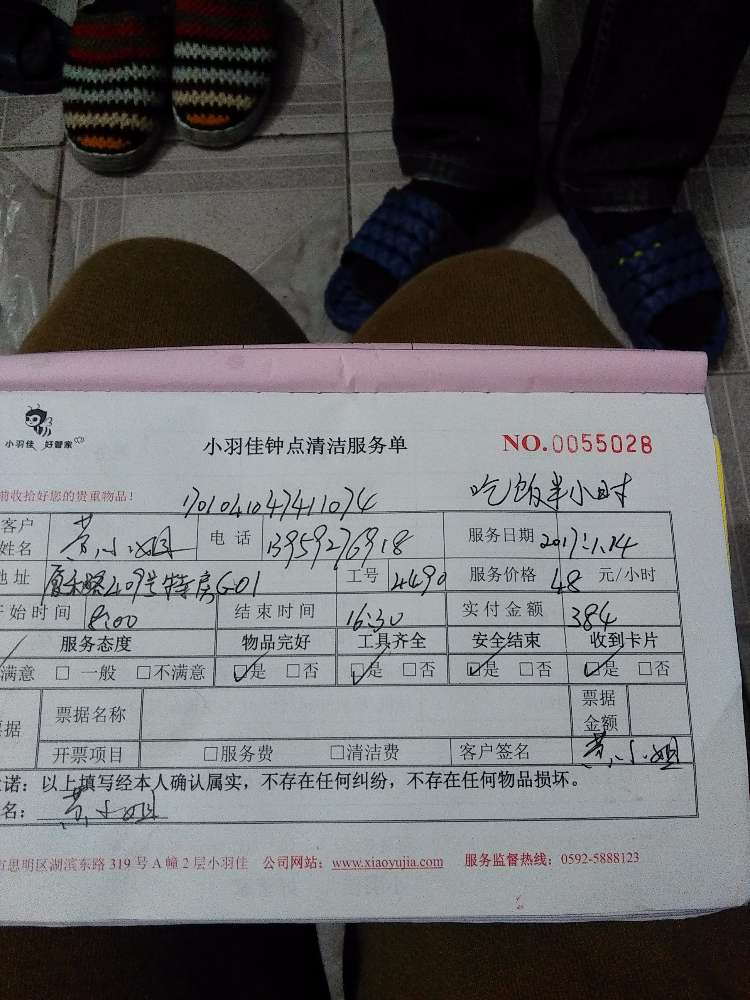 小羽佳 好管家
小羽佳钟点清洁服务单 NO.0055028
前收拾好您的贵重物品! 1701041047411074 吃饭半小时
客户姓名 黄小姐 电话 13959276918 服务日期 2017.1.14
地址 厦禾路409号特房G01 工号 4490 服务价格 48 元/小时
开始时间 8:00 结束时间 16:30 实付金额 384
服务态度 物品完好 工具齐全 安全结束 收到卡片
满意 □ 一般 □不满意 ☑是 □否 ☑是 □否 ☑是 □否 ☑是 □否
票据 票据名称 票据金额
开票项目 □服务费 □清洁费 客户签名 黄小姐
诺:以上填写经本人确认属实,不存在任何纠纷,不存在任何物品损坏。
名: 黄小姐
市思明区湖滨东路 319 号 A 幢 2 层小羽佳 公司网站:www.xiaoyujia.com 服务监督热线:0592-5888123